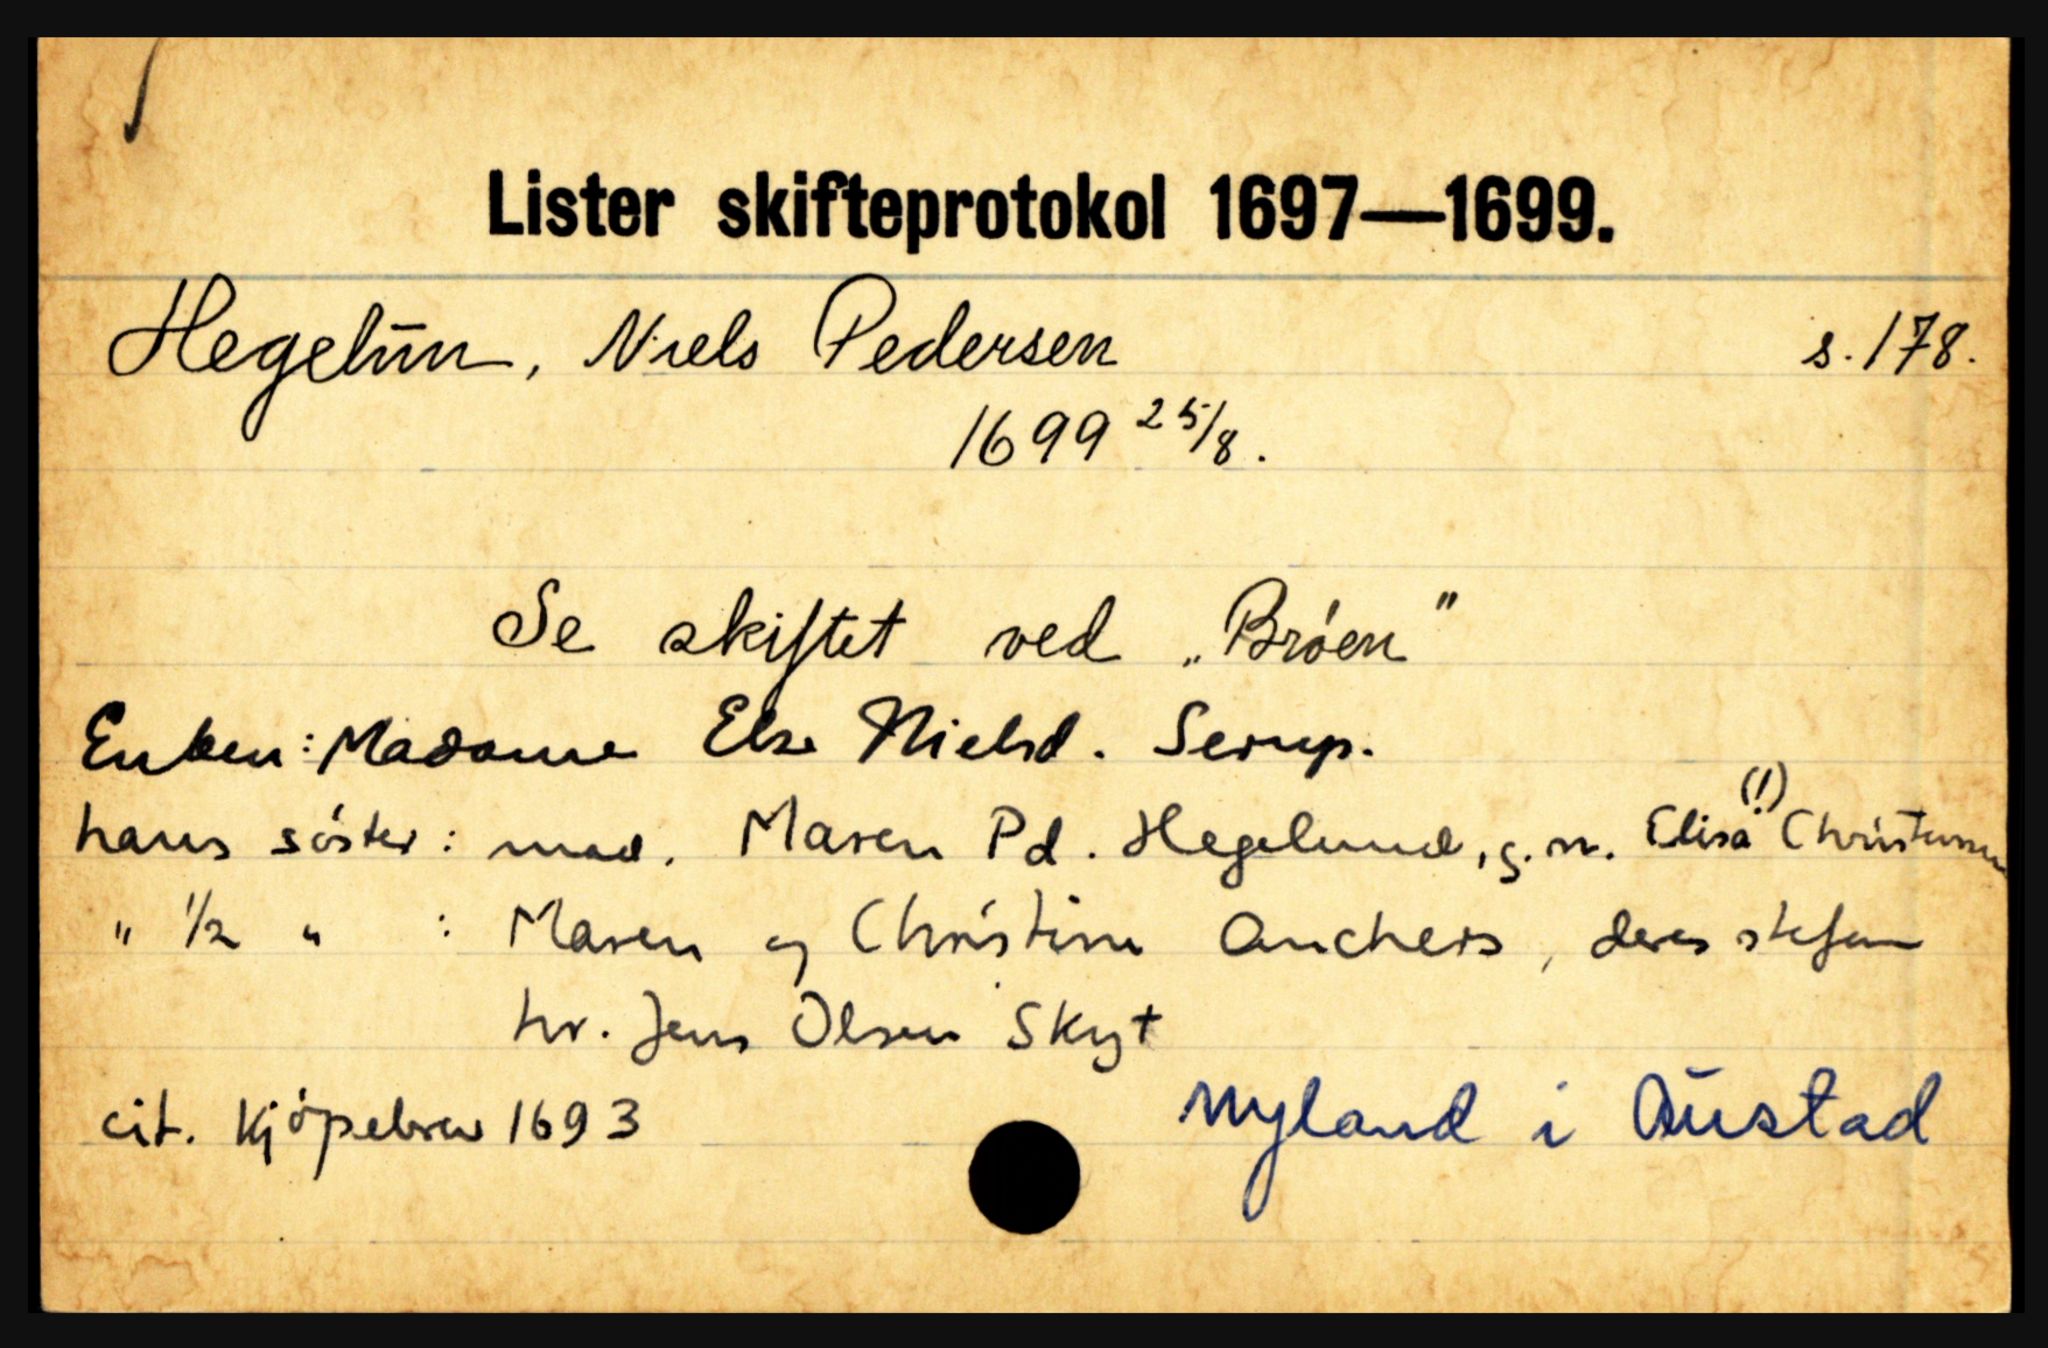 Lister skifteprotokol 1697—1699.
Hegelūn, Niels Pedersen s. 178.
1699 25/8.
Se skiftet ved „Bróen"
Enken: Madame Else Nielsd. Serup.
hans söster: mad. Maren Pd. Hegelund, g.m. Elisa (!) Christensen
" 1/2 " : Maren og Christine Anchers, deres stefar
hr. Jens Olsen Skyt
cit. Kjöpebrev 1693
Nyland i Aūstad